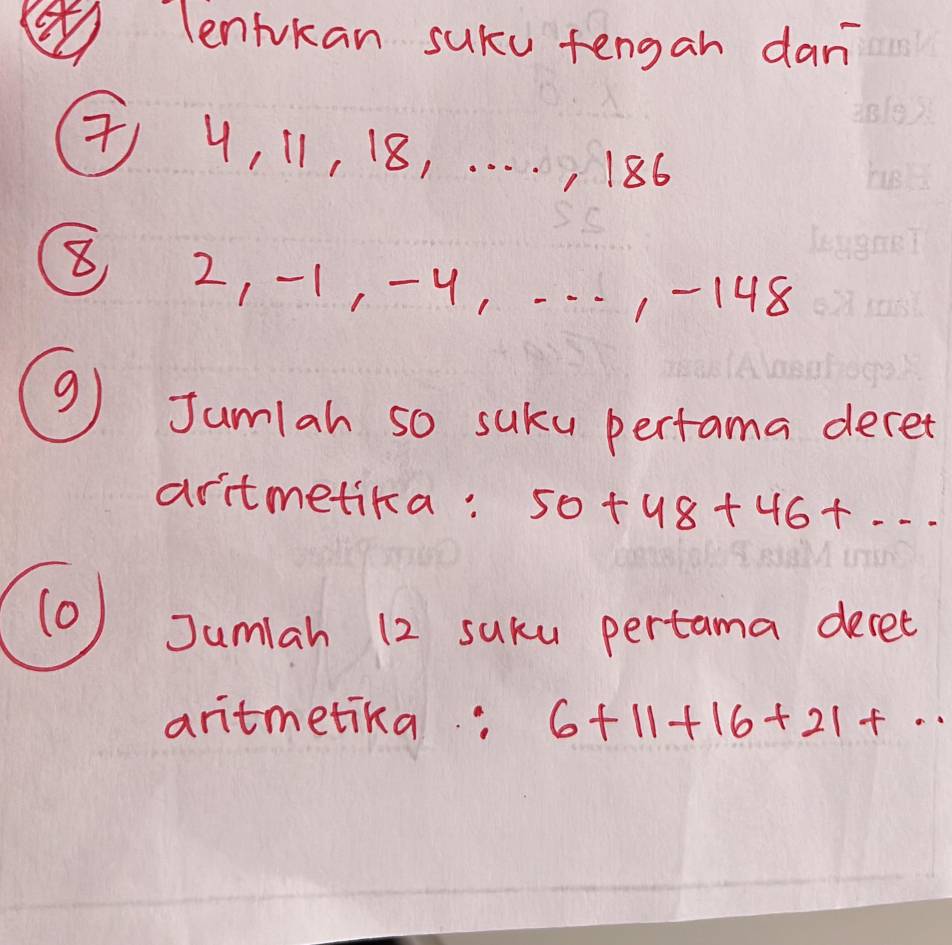 Tentukan suku tengah dari
7 4, 11, 18, ....., 186
8 2, -1, -4, ...., -148
9 Jumlah 50 suku pertama deret
aritmetika : 50 + 48 + 46 + ...
10 Jumlah 12 suku pertama deret
aritmetika : 6 + 11 + 16 + 21 + ..